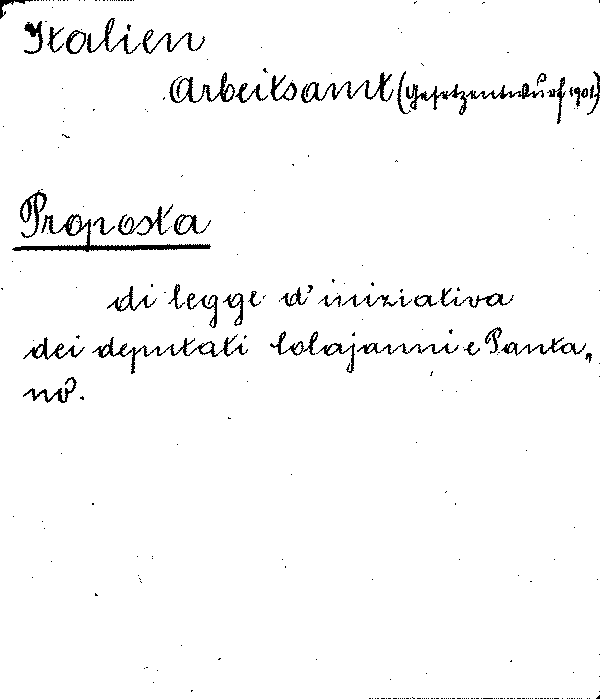 Italien
Arbeitsamt (Gesetzentwurf 1901)
Proposta
di legge d'iniziativa
dei deputati Colajanni e Panta-
no.